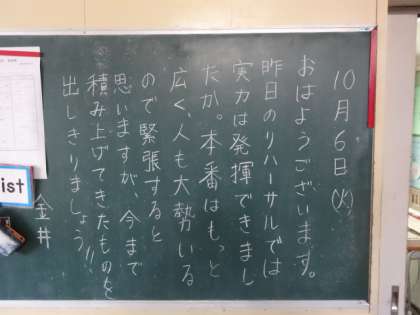 10月6日(火)
おはようございます。
昨日のリハーサルでは
実力は発揮できまし
たか。本番はもっと
広く、人も大勢いる
ので緊張すると
思いますが、今まで
積み上げてきたものを
出しきりましょう!!
金井
ist